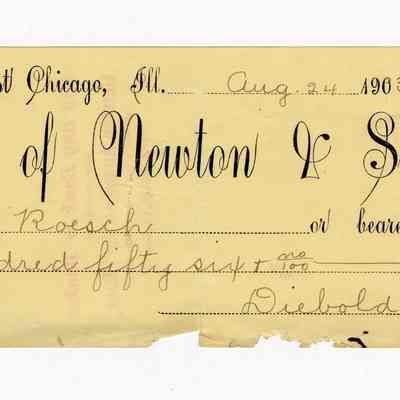 st Chicago, Ill. Aug. 24 1903
of Newton & S
Roesch or beare
dred fifty six + no/100
Diebold